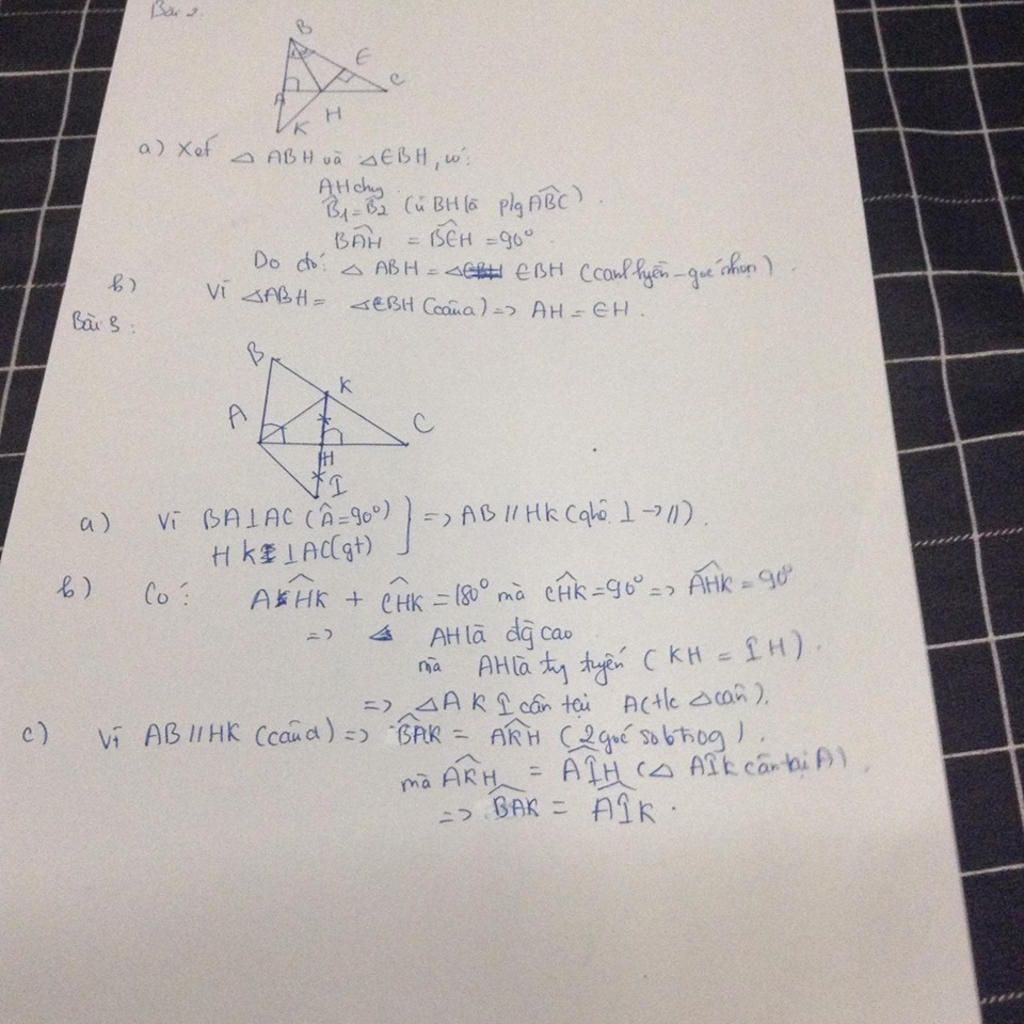 Bài 2.
B
E
C
A
H
K
a) Xét △ ABH và △EBH, có:
AH chung
B̂1 = B̂2 (vì BH là p/g ABC)
BAH = BEH = 90°
Do đó: △ ABH = △ EBH (cạnh huyền - góc nhọn).
b) Vì △ABH = △EBH (câu a) => AH = EH.
Bài 3:
B
K
A
C
H
I
a) Vì BA⊥AC (Â=90°)
HK⊥AC (gt)
=> AB // HK (qhệ ⊥ → //).
b) Có: AHK + CHK = 180° mà CHK = 90° => AHK = 90°
=> AH là đg cao
mà AH là tg tuyến (KH = IH).
=> △AKI cân tại A (t/c △ cân).
c) Vì AB // HK (câu a) => BAK = AKH (2 góc so le trog).
mà AKH = AIH (△ AIK cân tại A)
=> BAK = AIK.